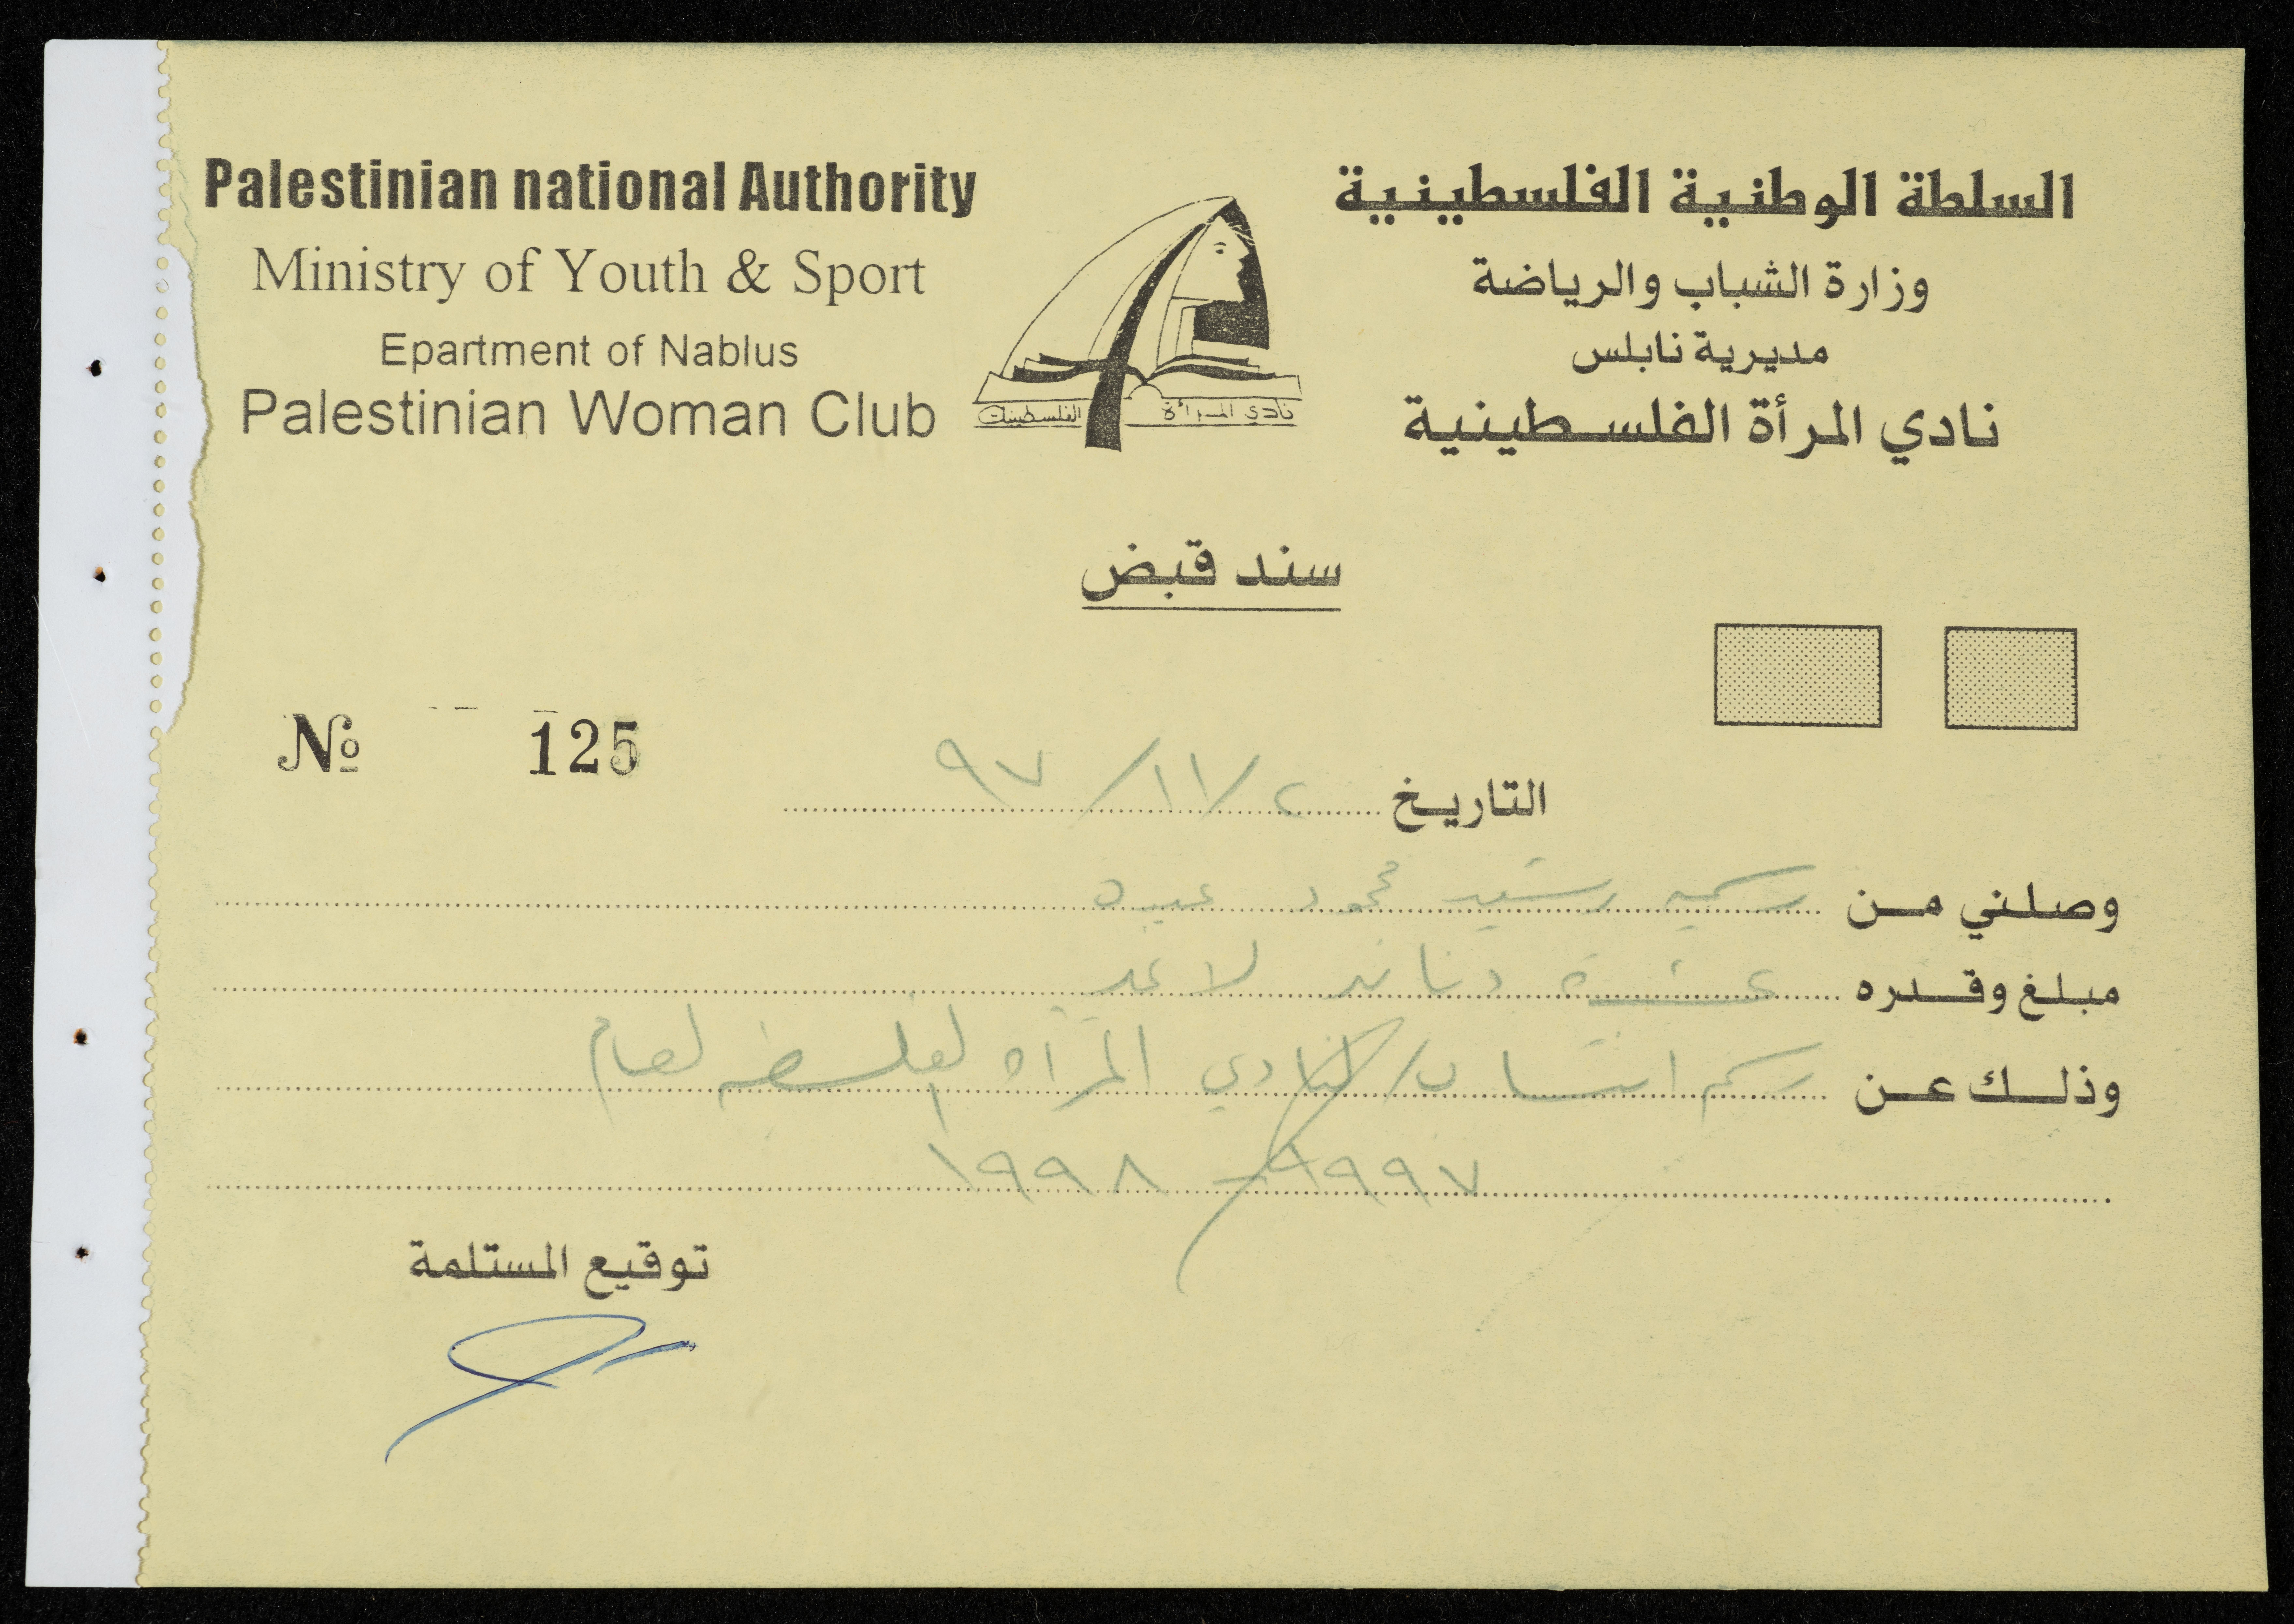 Palestinian national Authority
Ministry of Youth & Sport
Epartment of Nablus
Palestinian Woman Club
السلطة الوطنية الفلسطينية
وزارة الشباب والرياضة
مديرية نابلس
نادي المرأة الفلسطينية
نادي المرأة الفلسطينيات
سند قبض
№ 125
التاريخ ٢/١١/٩٧
وصلني من رسميه رشيد محمود عبيد
مبلغ وقدره عشرة دنانير لا غير
وذلك عن رسم انتساب/ لنادي المرأه الفلسطينيه لعام
١٩٩٧ - ١٩٩٨
توقيع المستلمة